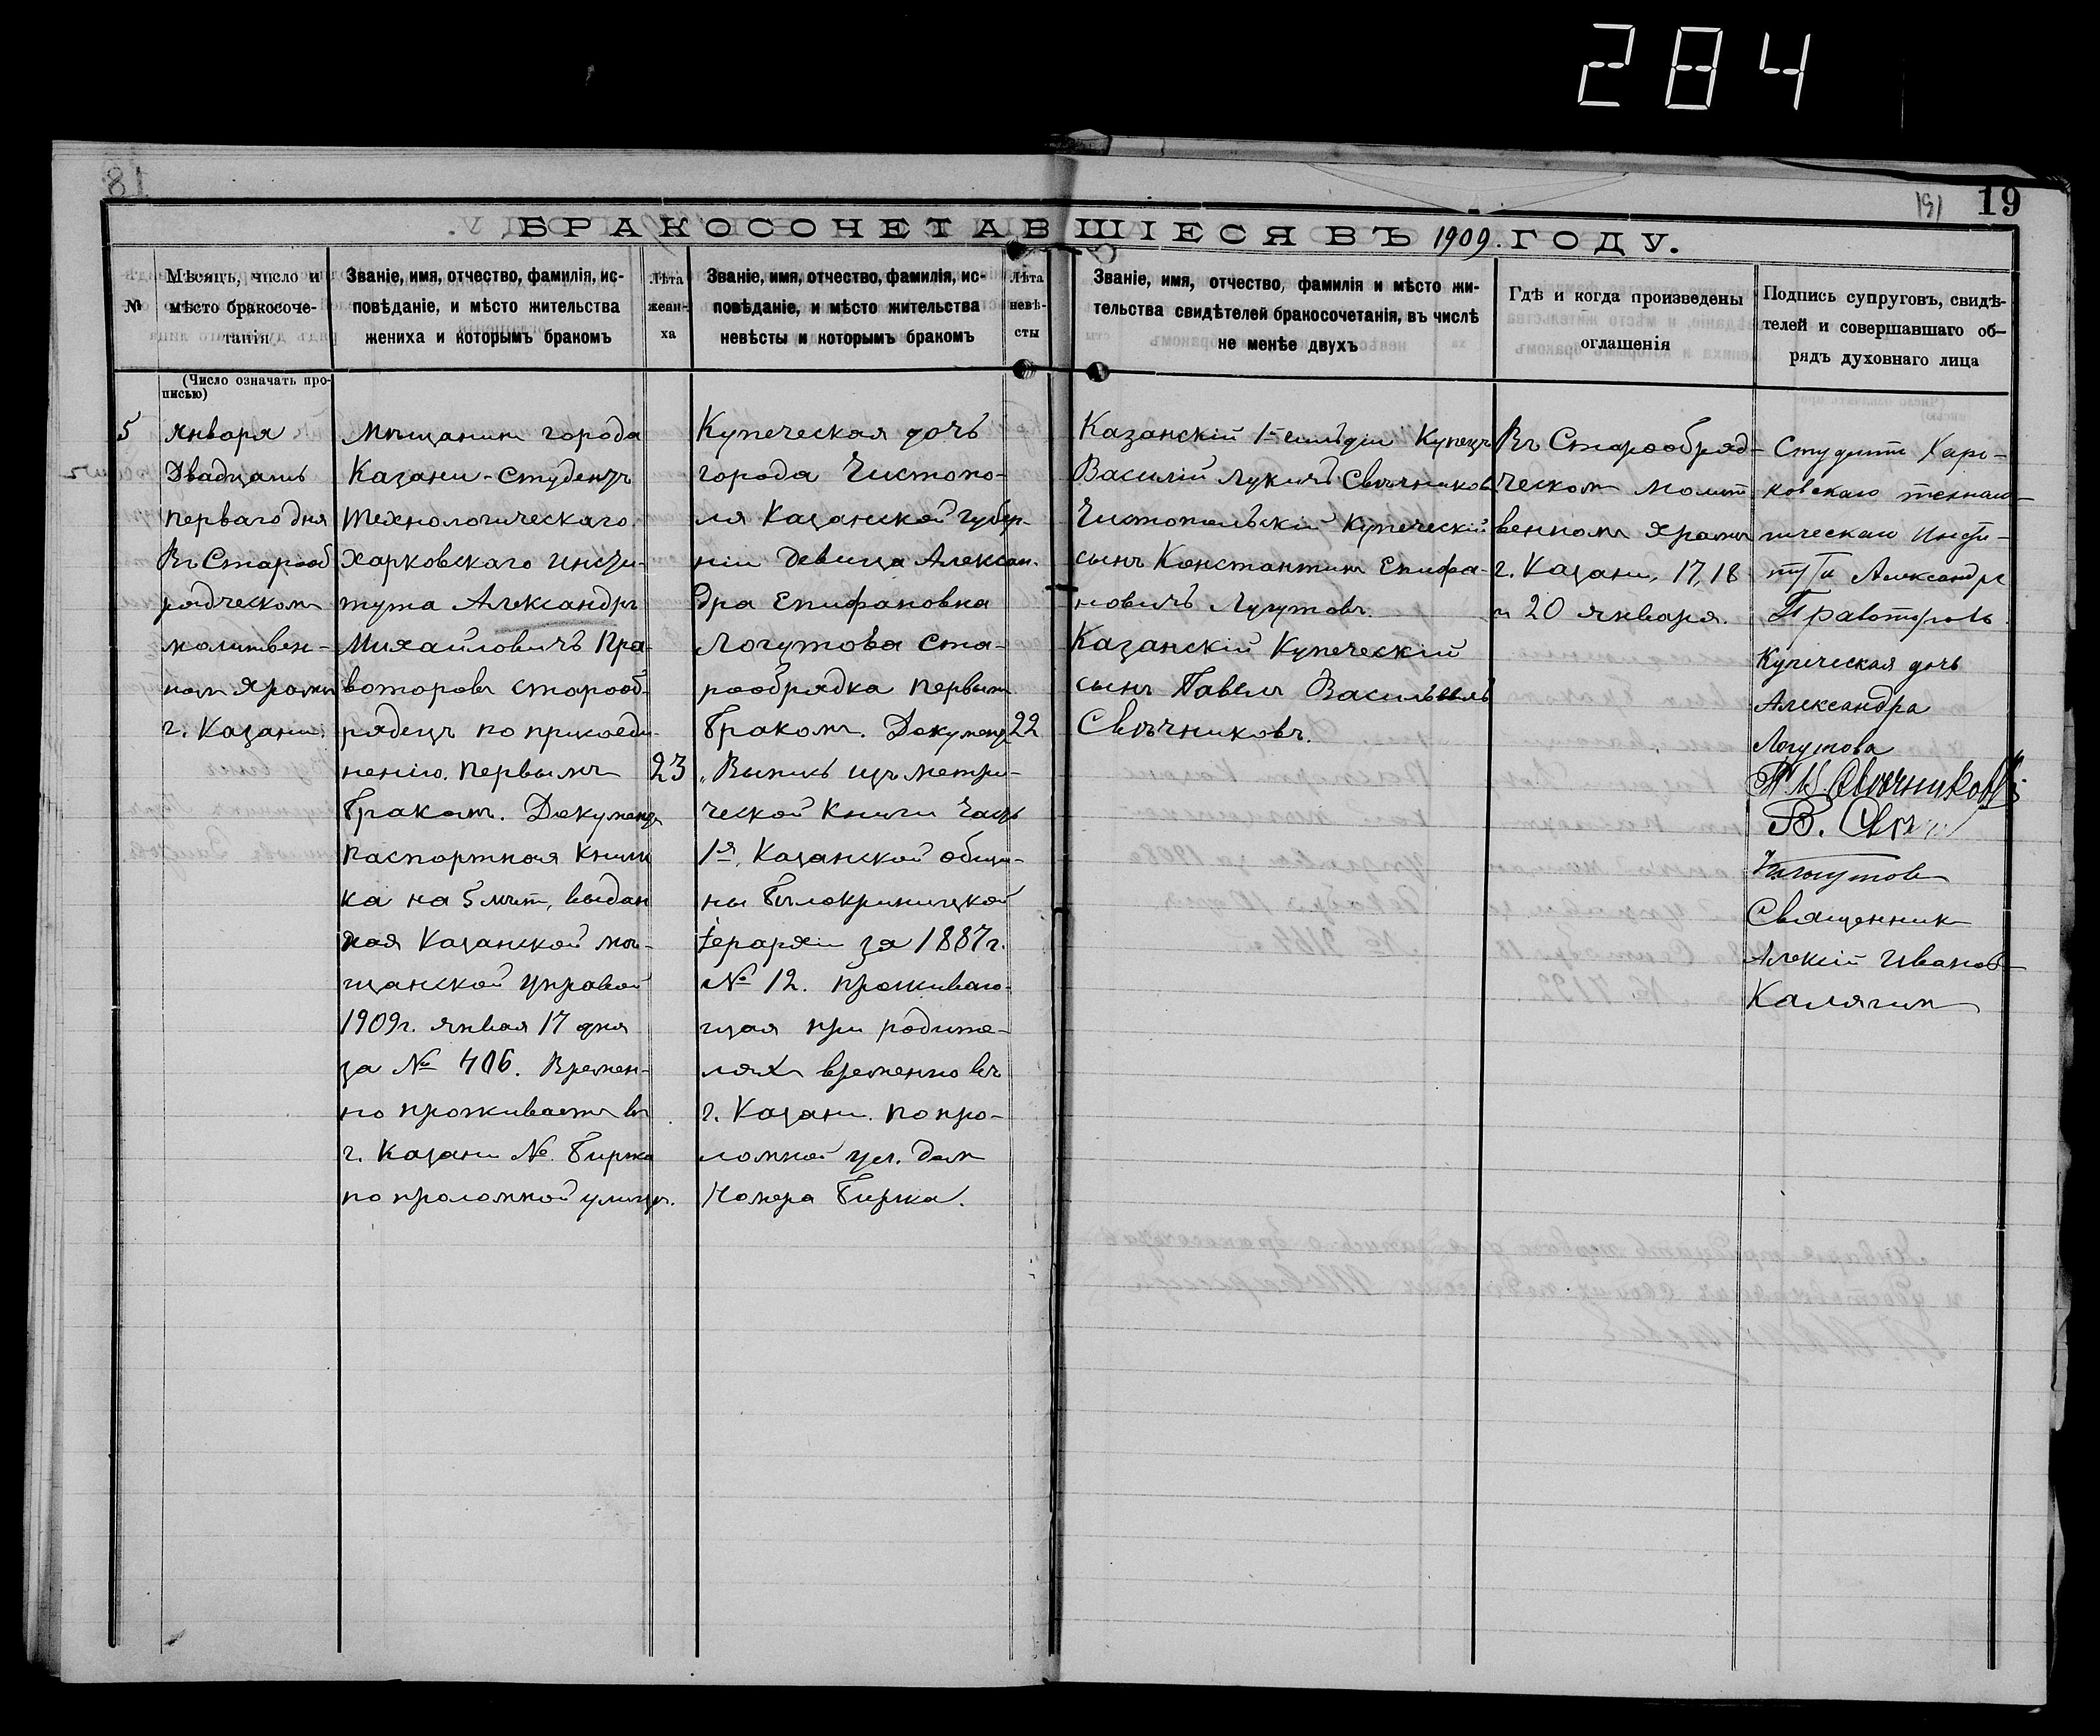 284
18
19
191
БРАКОСОЧЕТАВШІЕСЯ ВЪ 1909. ГОДУ.
№
Мѣсяцъ, число и
мѣсто бракосоче-
танія
Званіе, имя, отчество, фамилія, ис-
повѣданіе, и мѣсто жительства
жениха и которымъ бракомъ
Лѣта
жени-
ха
Званіе, имя, отчество, фамилія, ис-
повѣданіе, и мѣсто жительства
невѣсты и которымъ бракомъ
Лѣта
невѣ-
сты
Званіе, имя, отчество, фамилія и мѣсто жи-
тельства свидѣтелей бракосочетанія, въ числѣ
не менѣе двухъ
Гдѣ и когда произведены
оглашенія
Подпись супруговъ, свидѣ-
телей и совершавшаго об-
рядъ духовнаго лица
(Число означать про-
писью)
5
Января
Двадцать
перваго дня
Въ Старооб
рядческом
молитвен-
ном храмѣ
г. Казани.
Мѣщанинъ города
Казани - студентъ
Технологическаго
Харковскаго инсти-
тута Александръ
Михайловичъ Пра-
воторовъ старооб-
рядецъ по присоеди-
нению. Первымъ
бракомъ. Документъ
паспортная книж
ка на 5 лѣтъ, выдан
ная Казанской мѣ-
щанской управой
1909 г. января 17 дня
за № 406. Времен-
но проживаетъ въ
г. Казани №. Биржа
по проломной улицѣ.
23
Купеческая дочь
города Чистопо-
ля Казанской губер-
ніи девица Алексан-
дра Епифановна
Логутова ста-
рообрядка первым
браком. Документ
„Выпись изъ метри-
ческой книги часть
1я, Казанской общи-
ны Бѣлокриницкой
іерархіи за 1887 г.
№ 12. проживаю-
щая при родите-
ляхъ временно въ
г. Казани. по про-
ломной ул. дом
Номера Биржа.
22
Казанскій 1й гильдіи Купецъ
Василій Лукичъ Свѣчников
Чистопольскій Купеческій
сынъ Константинъ Епифа-
новичъ Лугутовъ.
Казанскій Купеческій
сынъ Павелъ Васильевичъ
Свѣчниковъ.
Въ Старообряд-
ческомъ молит
венномъ храмѣ
г. Казани, 17, 18
и 20 января.
Студентъ Харь-
ковскаго техноло-
гическаго Инсти-
тута Александръ
Правоторовъ.
Купеческая дочь
Александра
Логутова
П. В. Свѣчниковъ
В. Свѣч
К Логутов
Священник
Алексій Иванов
Калягин